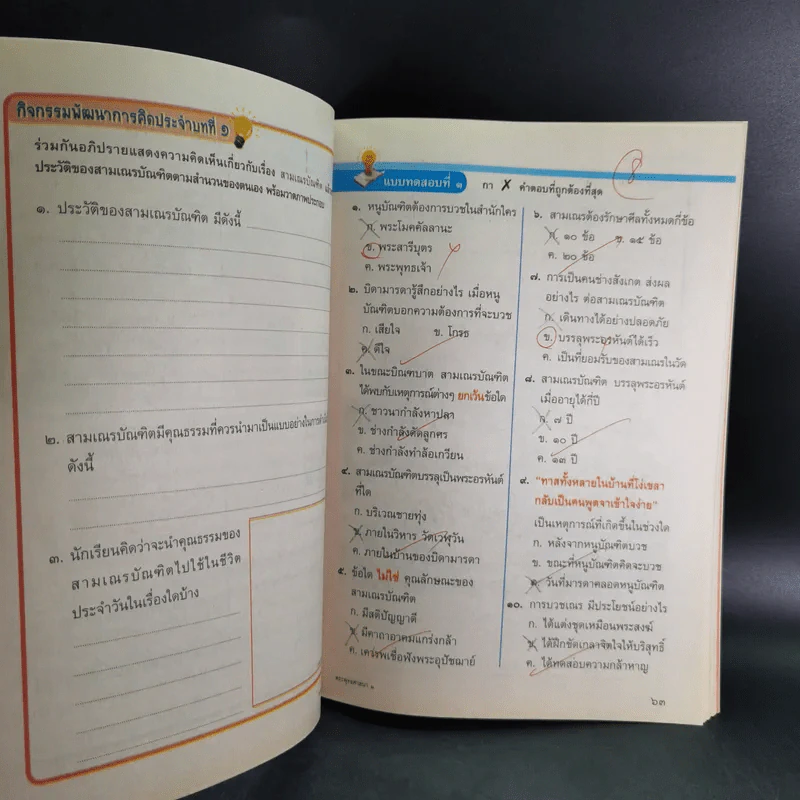 กิจกรรมพัฒนาการคิดประจำบทที่ ๑
ร่วมกันอภิปรายแสดงความคิดเห็นเกี่ยวกับเรื่อง สามเณรบัณฑิต
ประวัติของสามเณรบัณฑิตตามสำนวนของตนเอง พร้อมวาดภาพประกอบ
๑. ประวัติของสามเณรบัณฑิต มีดังนี้
๒. สามเณรบัณฑิตมีคุณธรรมที่ควรนำมาเป็นแบบอย่างในการ
ดังนี้
๓. นักเรียนคิดว่าจะนำคุณธรรมของ
สามเณรบัณฑิตไปใช้ในชีวิต
ประจำวันในเรื่องใดบ้าง
แบบทดสอบที่ ๑
กา ✗ คำตอบที่ถูกต้องที่สุด
8
๑. หนูบัณฑิตต้องการบวชในสำนักใคร
ก. พระโมคคัลลานะ
ข. พระสารีบุตร
ค. พระพุทธเจ้า
๒. บิดามารดารู้สึกอย่างไร เมื่อหนู
บัณฑิตบอกความต้องการที่จะบวช
ก. เสียใจ ข. โกรธ
ค. ดีใจ
๓. ในขณะบิณฑบาต สามเณรบัณฑิต
ได้พบกับเหตุการณ์ต่างๆ ยกเว้นข้อใด
ก. ชาวนากำลังหาปลา
ข. ช่างกำลังดัดลูกศร
ค. ช่างกำลังทำล้อเกวียน
๔. สามเณรบัณฑิตบรรลุเป็นพระอรหันต์
ที่ใด
ก. บริเวณชายทุ่ง
ข. ภายในวิหาร วัดเวฬุวัน
ค. ภายในบ้านของบิดามารดา
๕. ข้อใด ไม่ใช่ คุณลักษณะของ
สามเณรบัณฑิต
ก. มีสติปัญญาดี
ข. มีคาถาอาคมแกร่งกล้า
ค. เคารพเชื่อฟังพระอุปัชฌาย์
พระพุทธศาสนา ๒
๖. สามเณรต้องรักษาศีลทั้งหมดกี่ข้อ
ก. ๑๐ ข้อ ข. ๑๕ ข้อ
ค. ๒๐ ข้อ
๗. การเป็นคนช่างสังเกต ส่งผล
อย่างไร ต่อสามเณรบัณฑิต
ก. เดินทางได้อย่างปลอดภัย
ข. บรรลุพระอรหันต์ได้เร็ว
ค. เป็นที่ยอมรับของสามเณรในวัด
๘. สามเณรบัณฑิต บรรลุพระอรหันต์
เมื่ออายุได้กี่ปี
ก. ๗ ปี
ข. ๑๐ ปี
ค. ๑๓ ปี
๙. "ทาสทั้งหลายในบ้านที่โง่เขลา
กลับเป็นคนพูดจาเข้าใจง่าย"
เป็นเหตุการณ์ที่เกิดขึ้นในช่วงใด
ก. หลังจากหนูบัณฑิตบวช
ข. ขณะที่หนูบัณฑิตคิดจะบวช
ค. วันที่มารดาคลอดหนูบัณฑิต
๑๐. การบวชเณร มีประโยชน์อย่างไร
ก. ได้แต่งชุดเหมือนพระสงฆ์
ข. ได้ฝึกขัดเกลาจิตใจให้บริสุทธิ์
ค. ได้ทดสอบความกล้าหาญ
๖๓